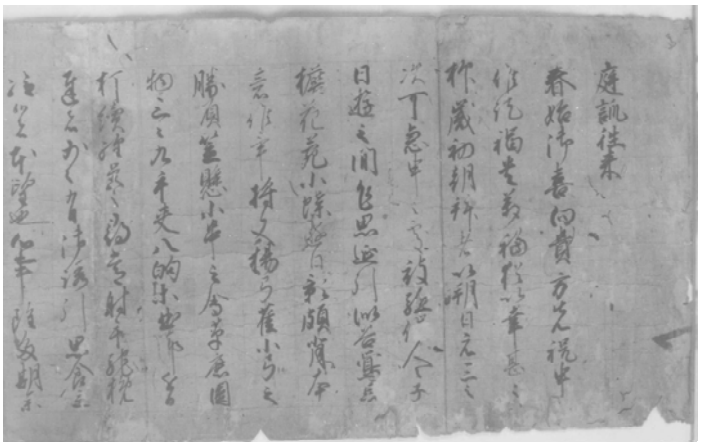 庭訓往来
春始御喜向貴方先祝申
候訖福貴万福猶以幸甚々
抑歳初朝拝者以朔日元三之
次可急申之処被駈催人々子
日遊之間乍思延引似谷鶯忘
檐花苑小蝶遊日影頗背本
意候畢将又楊弓雀小弓之
勝負笠懸小串之会草鹿圓
物三々九手夾八的等曲節近日
打續経営之尋常射手馳挽
達者少々有御誘引思食立
給者本望也心事雖多期参